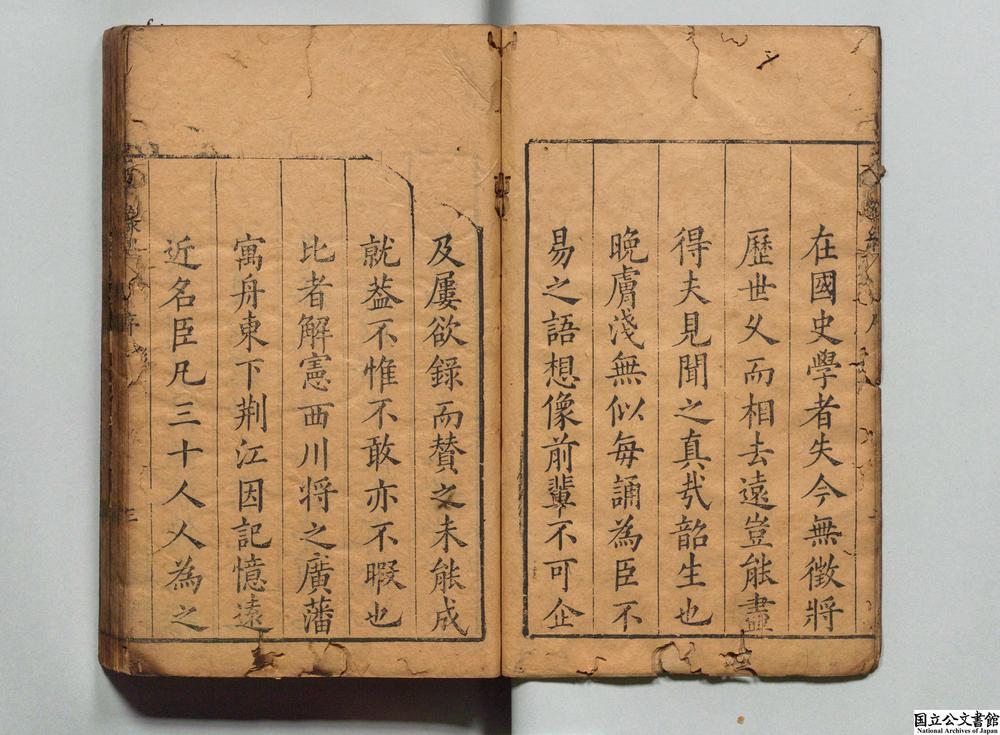 在國史學者失今無徵將
歷世久而相去遠豈能盡
得夫見聞之真㢤韶生也
晚膚淺無似每誦為臣不
易之語想像前輩不可企
及屢欲錄而賛之未能成
就葢不惟不敢亦不暇也
比者解憲西川将之廣藩
寓舟東下荆江因記憶遠
近名臣凡三十人人為之
国立公文書館
National Archives of Japan